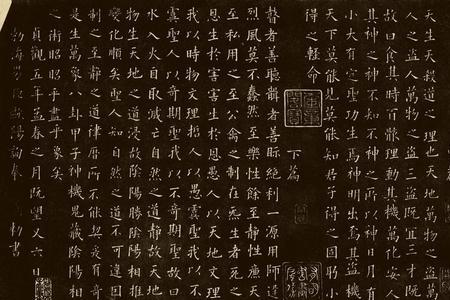 天生天殺道之理也天地萬物之盜
人之盜人萬物之盜三盜既宜三才既
故曰食其時百骸理動其機萬化安人
其神之神不知不神之所以神日月有
小大有定聖功生焉神明出焉其盜機
天下莫能見莫能知君子得之固躬小
得之輕命
下篇
瞽者善聽聾者善眎絕利一源用師
烈風莫不蠢然至樂性餘至靜性廉天
至私用之至公禽之制在炁生者死之
恩生於害害生於恩愚人以天地文理
我以時物文理哲人以愚虞聖我以不
虞聖人以奇期聖我以不奇期聖故曰
水入火自取滅亡自然之道靜故天地
物生天地之道浸故陰陽勝陰陽相推
變化順矣聖人知自然之道不可違因
制之至靜之道律曆所不能契爰有奇
是生萬象八卦甲子神機鬼藏陰陽相
之術昭昭乎盡乎象矣
貞觀五年孟春之月既望又六日
歐陽詢奉 勅書